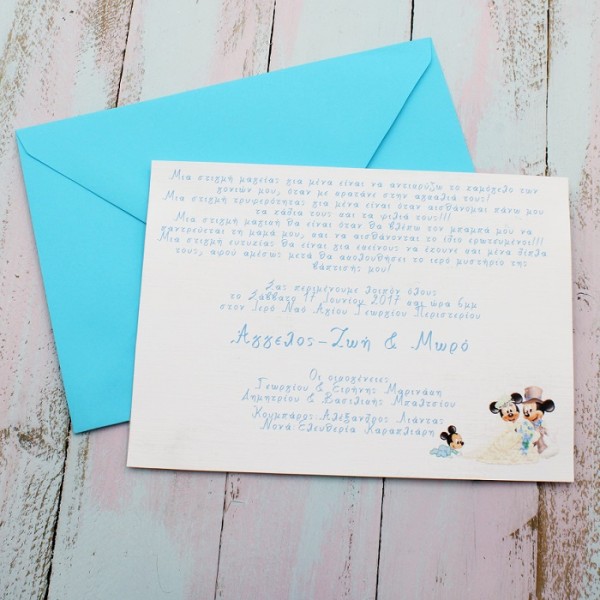 Μια στιγμή μαγεία: για μένα είναι να αντικρύζω το χαμόγελο των
γονιών μου, όταν με κρατάνε στην αγκαλιά τους!
Μια στιγμή τρυφερότητα: για μένα είναι όταν αισθάνομαι πάνω μου
τα χάδια τους και τα φιλιά τους!!!
Μια στιγμή μαγική θα είναι όταν θα βλέπω τον μπαμπά μου να
παντρεύεται τη μαμά μου, και να αισθάνονται το ίδιο ερωτευμένοι!!!
Μια στιγμή ευτυχία: θα είναι για εκείνους να έχουνε και μένα δίπλα
τους, αφού αμέσως μετά θα ακολουθήσει το ιερό μυστήριο της
βάπτισής μου!
Σας περιμένουμε λοιπόν όλους
το Σάββατο 17 Ιουνίου 2017 και ώρα 6μμ
στον Ιερό Ναό Αγίου Γεωργίου Περιστερίου
Άγγελος-Ζωή & Μωρό
Οι οικογένειες
Γεωργίου & Ειρήνης Μαρινάση
Δημητρίου & Βασιλικής Μπαλτσίου
Κουμπάρος Αλέξανδρος Λιάντας
Νονά Ελευθερία Καραπλιάρη